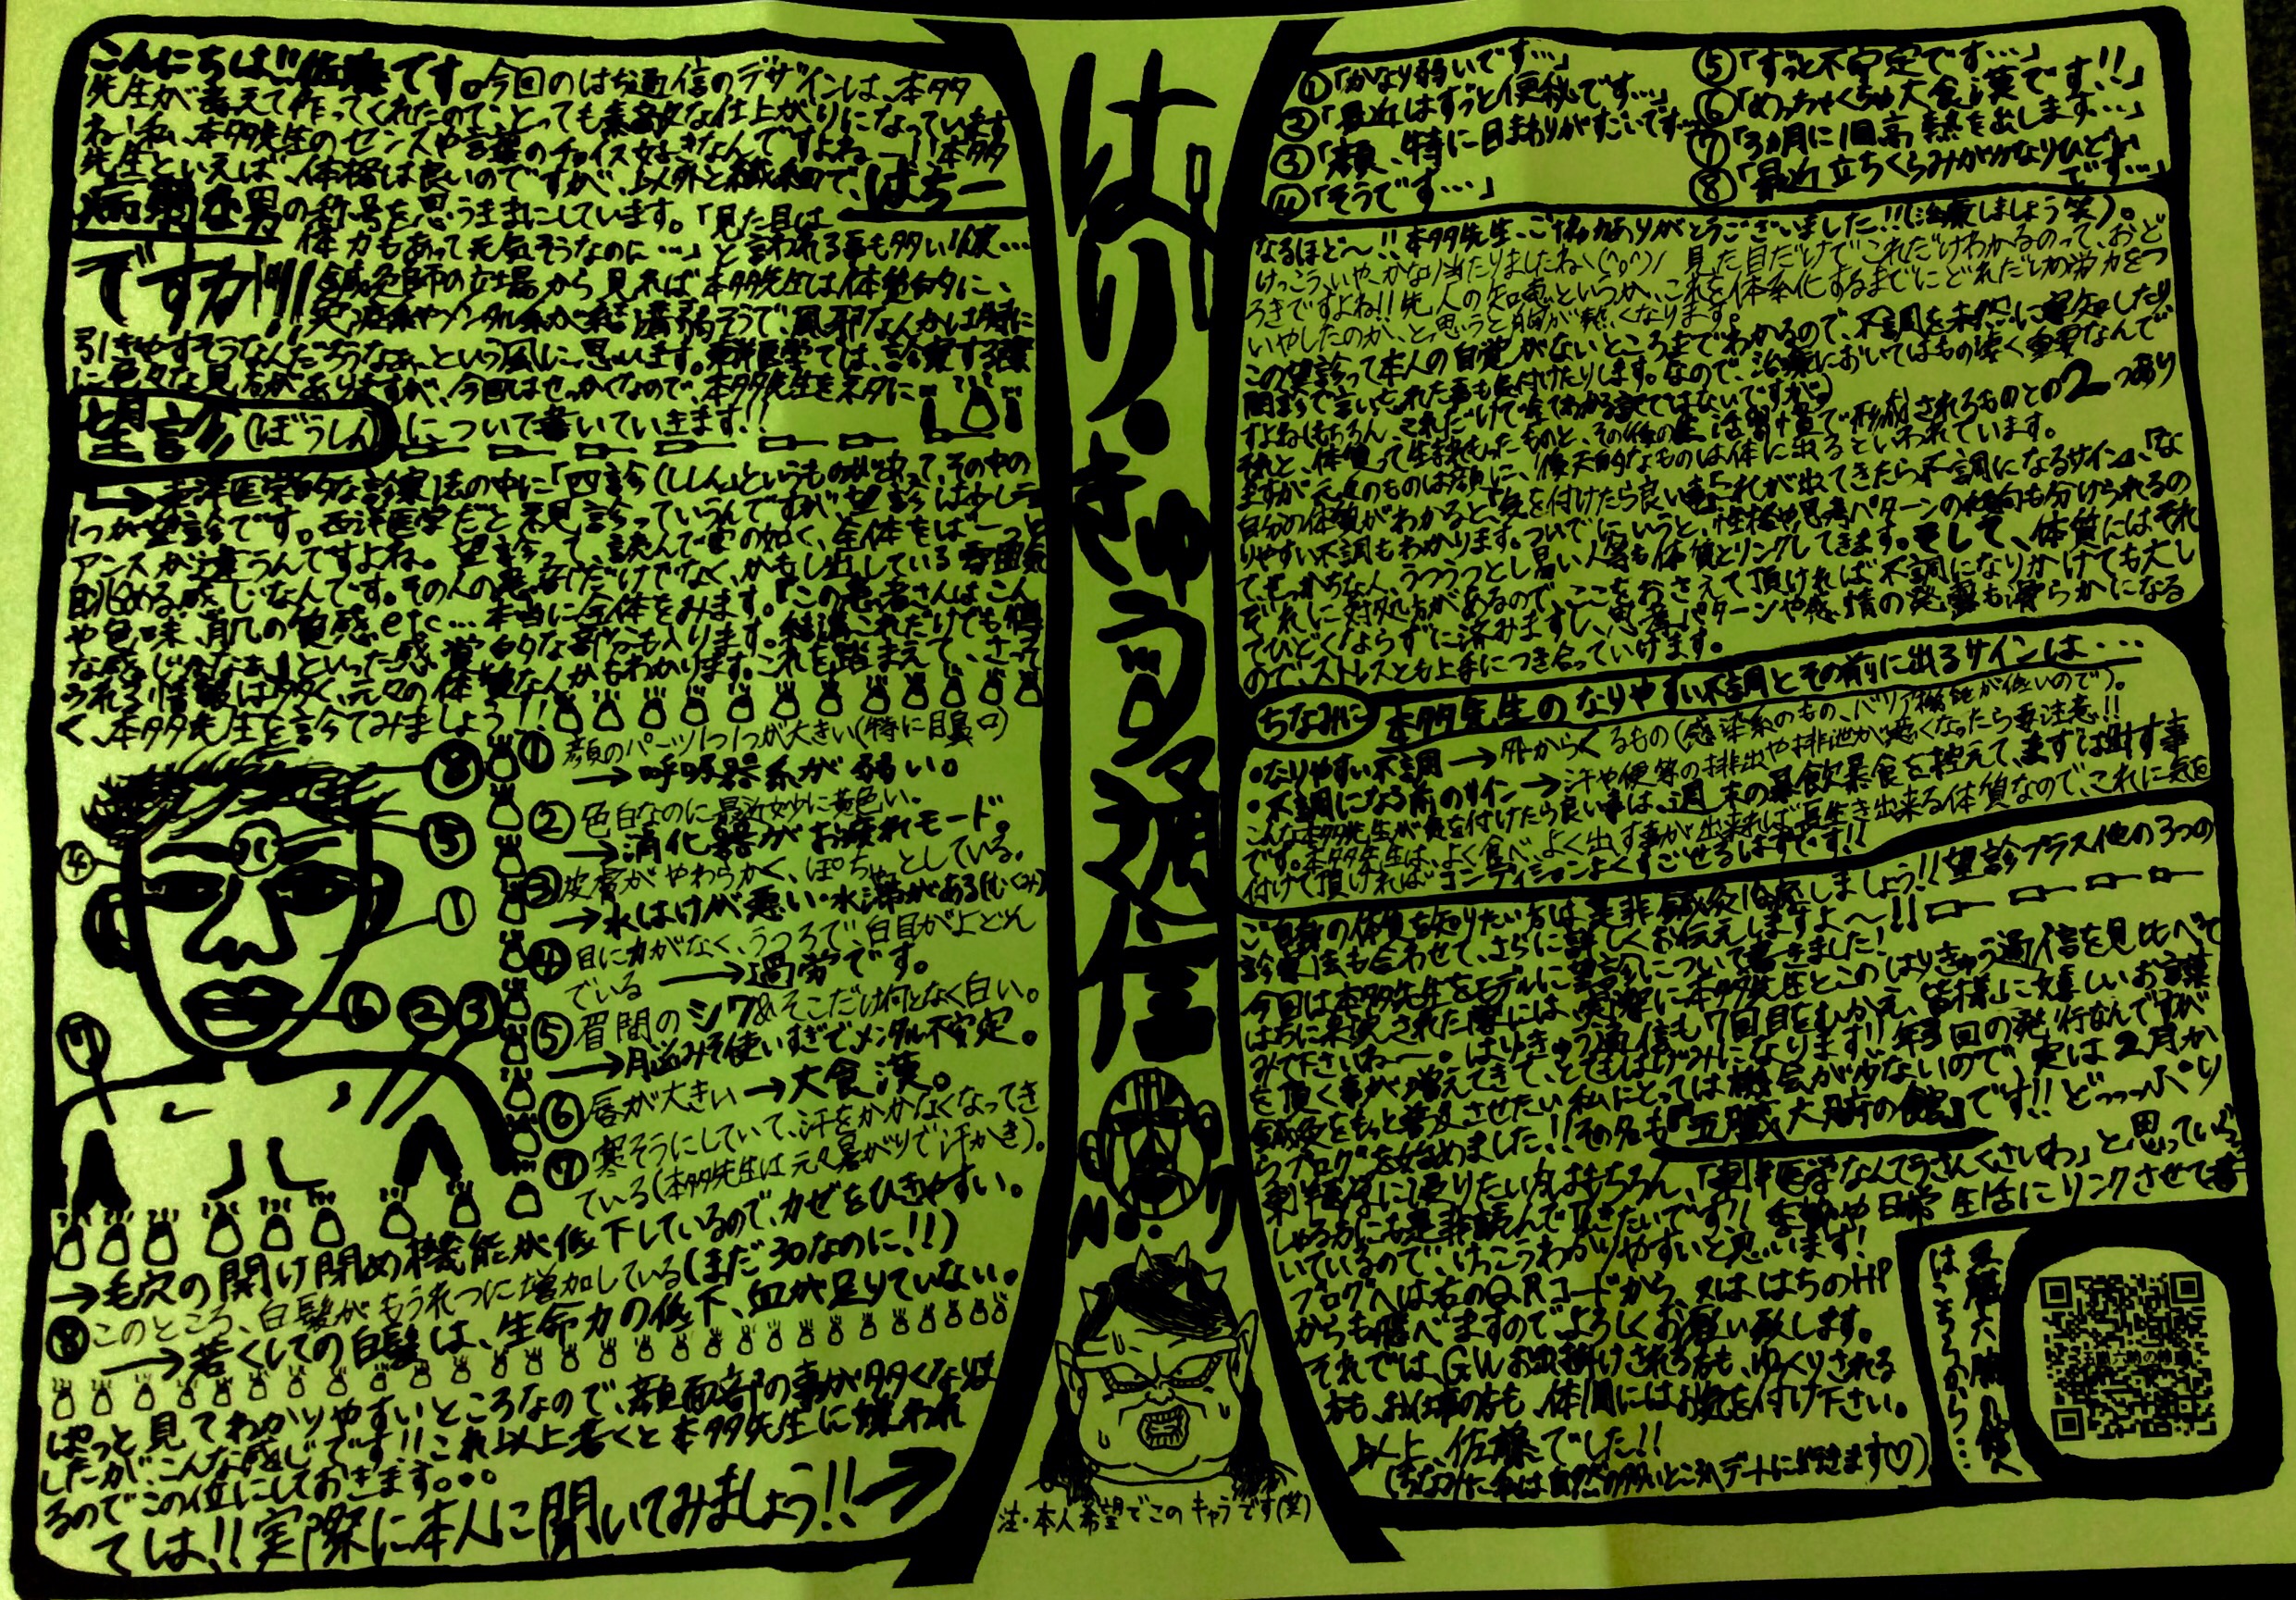 こんにちは!!佐藤です。今回のはち通信のデザインは、本多
先生が考えて作ってくれたので、とっても素敵な仕上がりになっています
ね!私、本多先生のセンスや言葉のチョイス好きなんですよねー!!本多
先生といえば、体格は良いのですが、以外と繊細で、はち一
病弱な男の称号を思うままにしています。「見た目は
体力もあって元気そうなのに…」と言われる事も多い彼…
ですが!!!鍼灸師の立場から見れば本多先生は体質的に、
免疫系やメンタル系が繊弱そうで、風邪なんかは特に
引きやすそうなんだろうなぁ、という風に思います。東洋医学では、診察する際
に色々な見方がありますが、今回はせっかくなので、本多先生をネタに
望診(ぼうしん)について書いていきます!!
→東洋医学的な診察法の中に「四診(ししん)」というものが出あって、その中の
1つが望診です。西洋医学だと視診っていうんですが、望診は少しニュ
アンスが違うんですよね。望診って、読んで字の如く、全体をぼーっと
眺める感じなんです。その人の患部だけでなく、かもし出している雰囲気
や色味、肌の質感etc…本当に全体をみます。「この患者さんはこん
な感じかなぁ」といった感覚的な部分も入ります。結構これだけでも得
られる情報は多く、元々の体質なんかもわかります。これを踏まえて、さっそ
く、本多先生を診てみましょう!!
①顔のパーツ1つ1つが大きい(特に目鼻口)
→呼吸器系が弱い。
②色白なのに最近妙に黄色い。
→消化器がお疲れモード。
③皮膚がやわらかく、ぽちゃっとしている。
→水はけが悪い・水滞がある(むくみ)
④目に力がなく、うつろで白目がよどん
でいる→過労です。
⑤眉間のシワ&そこだけ何となく白い。
→脳みそ使いすぎでメンタル不安定。
⑥唇が大きい→大食漢。
⑦寒そうにしていて、汗をかかなくなってき
ている(本多先生は元々暑がりで汗かき)。
→毛穴の開け閉め機能が低下しているので、カゼをひきやすい。
⑧このところ、白髪がもうれつに増加している(まだ30なのに!!)
→若くしての白髪は、生命力の低下、血が足りていない。
ぱっと見てわかりやすいところなので、顔面部の事が多くなりま
したが、こんな感じです!!これ以上書くと本多先生に嫌われ
るのでこの位にしておきます。。。
では!!実際に本人に聞いてみましょう!!→
⑧
⑤
④
①
⑥②③
⑦
はり・きゅう通信
No.7
注・本人希望でこのキャラです(笑)
①「かなり弱いです…」
②「最近はずっと便秘です…」
③「顔、特に目まわりがすごいです…」
④「そうです…」
⑤「ずっと不安定です…」
⑥「めっちゃくちゃ大食い漢です!!」
⑦「3ヵ月に1回高熱を出します…」
⑧「最近立ちくらみがかなりひどい
です…」
なるほど〜!!本多先生、ご協力ありがとうございました!!(治療しましょう笑)。
けっこう、いや、かなり当たりましたねヽ(^o^)ノ 見た目だけでこれだけわかるのって、おど
ろきですよね!!先人の知恵というか、これを体系化するまでにどれだけの労力をつ
いやしたのか、と思うと胸が熱くなります。
この望診って本人の自覚がないところまでわかるので、不調を未然に察知したり、
問診で言い忘れた事も気付けたりします。なので、治療においてはもの凄く重要なんで
すよね(もちろん、これだけで全てわかる訳ではないですが)
それと、体質って生まれもったものと、その後の生活習慣で形成されるものとの2つあり
ますが、元々のものは顔に、後天的なものは体に出るといわれています。
自分の体質がわかると、「気を付けたら良い事」「これが出てきたら不調になるサイン」、「な
りやすい不調」もわかります。ついでにいうと、性格や思考パターンの傾向も分けられるの
で、せっかちな人、うつうつとし易い人等も体質とリンクしてきます。そして、体質にはそれ
ぞれに対処方があるので、ここをおさえて頂ければ不調になりかけても大し
てひどくならずに済みますし、思考パターンや感情の発露も滑らかになる
ので、ストレスとも上手につき合っていけます。
ちなみに 本多先生のなりやすい不調とその前に出るサインは…
・なりやすい不調→外からくるもの(感染系のもの、バリア機能が低いので)。
・不調になる前のサイン→汗や便等の排出や排泄が悪くなったら要注意!!
こんな本多先生が気を付けたら良い事は、週末の暴飲暴食を控えて、まずは出す事
です。本多先生は、よく食べ、よく出す事が出来れば長生き出来る体質なので、これに気を
付けて頂ければコンディションよくすごせるはずです!!
ご自身の体質を知りたい方は是非鍼灸治療しましょう!!望診プラス他の3つの
診察法も合わせて、さらに詳しくお伝えしますよ〜!!
今回は本多先生をモデルに望診について書きました!
はちに来院された際には、実際に本多先生とこのはりきゅう通信を見比べて
みて下さいねー。はりきゅう通信も7回目をむかえ、皆様に嬉しいお言葉
を頂く事が増えてきて、とてもはげみになります!!年3回の発行なんですが
鍼灸をもっと普及させたい私にとっては機会が少ないので、実は2月か
らブログを始めました!!その名も「五臓六腑の館」です!!どっっぷり
東洋医学に浸りたい方はもちろん、「東洋医学なんてうさんくさいわ」と思っていらっ
しゃる方にも是非読んで頂きたいです!!季節や日常生活にリンクさせて書
いているので、けっこうわかりやすいと思います!
ブログへは右のQRコードから、又は はちのHP
からも飛べますのでよろしくお願い致します。
それでは、GWお出掛けされる方も、ゆっくりされる
方も、お仕事の方も、体調にはお気を付け下さい。
以上、佐藤でした!!
(ちなみに私は自然の多いところへデートに行きます♡)
五臓六腑の館
はこちらから…